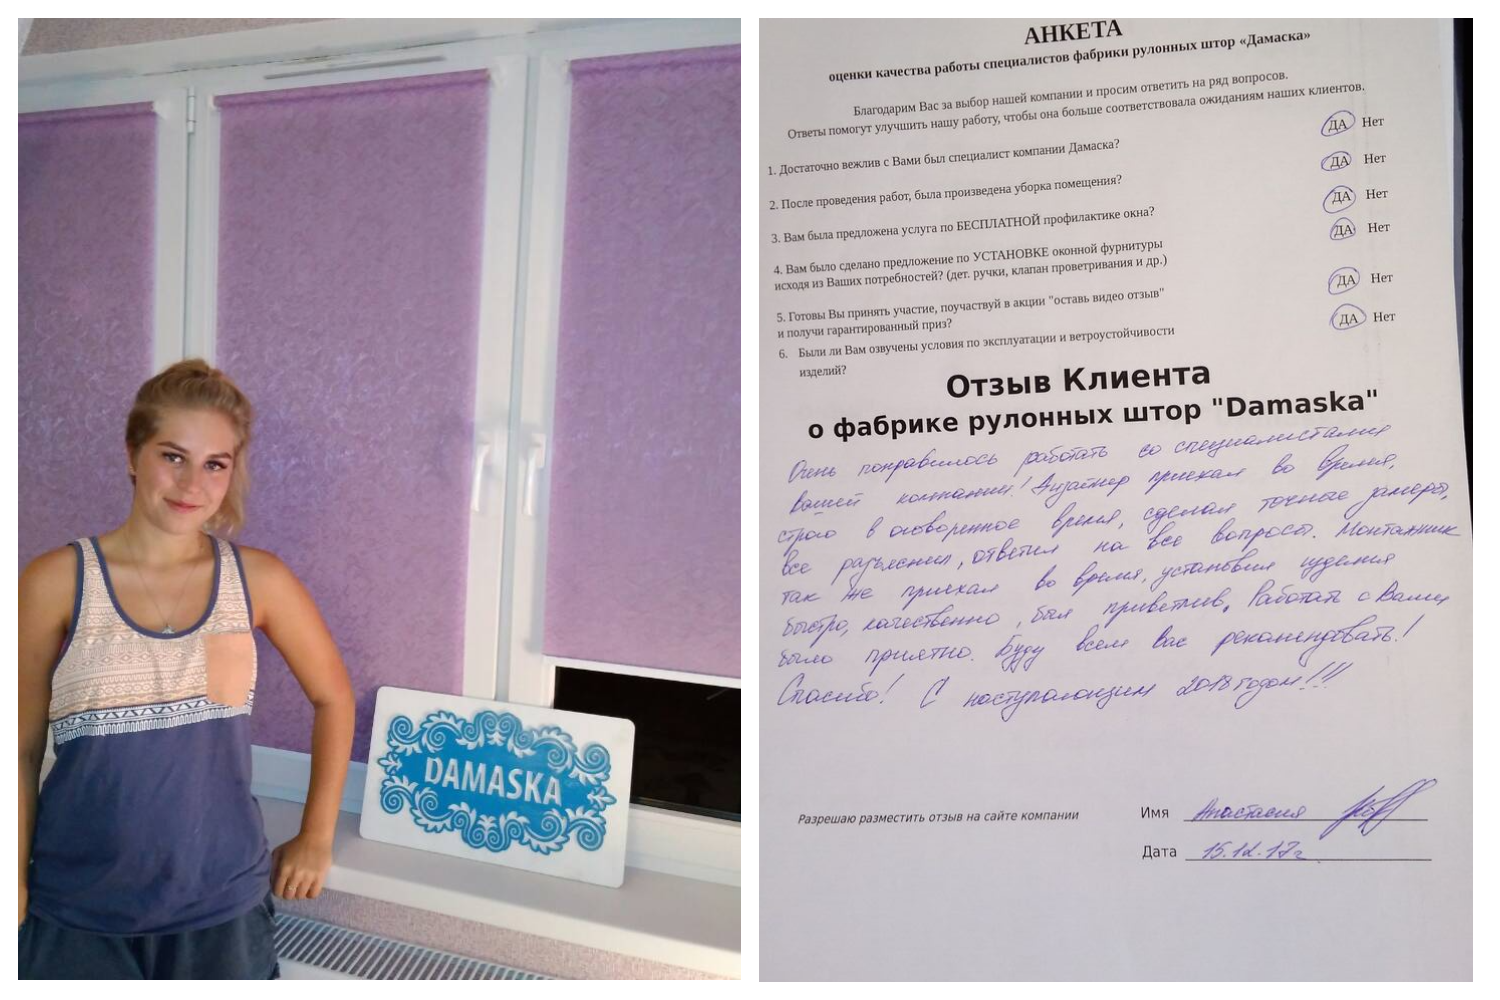 DAMASKA
АНКЕТА
оценки качества работы специалистов фабрики рулонных штор «Дамаска»
Благодарим Вас за выбор нашей компании и просим ответить на ряд вопросов.
Ответы помогут улучшить нашу работу, чтобы она больше соответствовала ожиданиям наших клиентов.
1. Достаточно вежлив с Вами был специалист компании Дамаска? ДА Нет
2. После проведения работ, была произведена уборка помещения? ДА Нет
3. Вам была предложена услуга по БЕСПЛАТНОЙ профилактике окна? ДА Нет
4. Вам было сделано предложение по УСТАНОВКЕ оконной фурнитуры ДА Нет
исходя из Ваших потребностей? (дет. ручки, клапан проветривания и др.)
5. Готовы Вы принять участие, поучаствуй в акции "оставь видео отзыв" ДА Нет
и получи гарантированный приз?
6. Были ли Вам озвучены условия по эксплуатации и ветроустойчивости ДА Нет
изделий?
Отзыв Клиента
о фабрике рулонных штор "Damaska"
Очень понравилось работать со специалистами
вашей компании! Дизайнер приехал во время,
строго в оговоренное время, сделал точные замеры,
все разъяснил, ответил на все вопросы. Монтажник
так же приехал во время, установил изделия
быстро, качественно, был приветлив. Работать с Вами
было приятно. Буду всем вас рекомендовать!
Спасибо! С наступающим 2018 годом!!!
Разрешаю разместить отзыв на сайте компании
Имя Анастасия
Дата 15.12.17г.